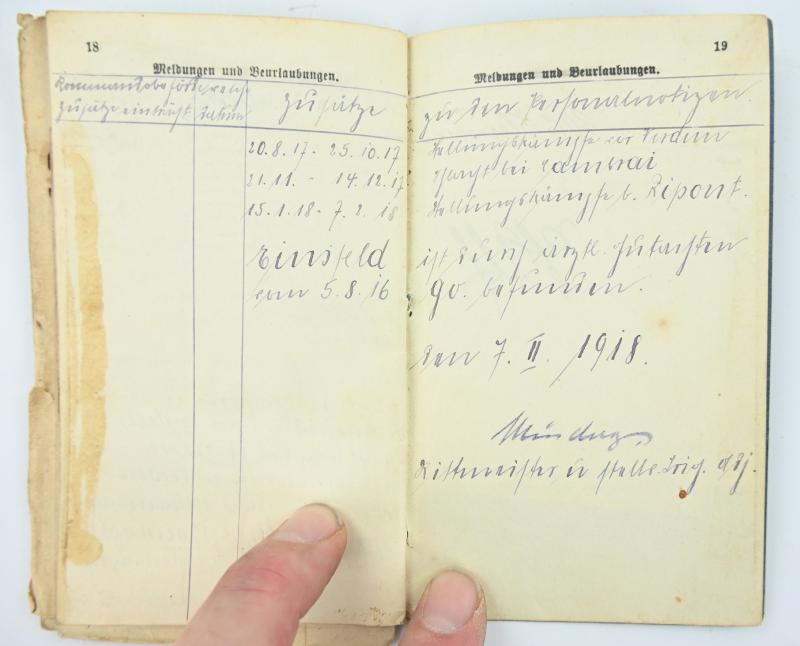 18
Meldungen und Beurlaubungen.
Kommandobehörde welche
Zusätze einträgt
Datum
Zusätze
20.8.17 - 25.10.17
21.11. - 14.12.17
15.1.18 - 7.2.18
Einsfeld
vom 5.8.16
19
Meldungen und Beurlaubungen.
zu den Personalnotizen.
Stellungskämpfe vor Verdun
Schlacht bei Cambrai
Stellungskämpfe b. Ripont.
ist durch ärztl. Gutachten
gv. befunden.
den 7. II. 1918.
Rittmeister u stellv.